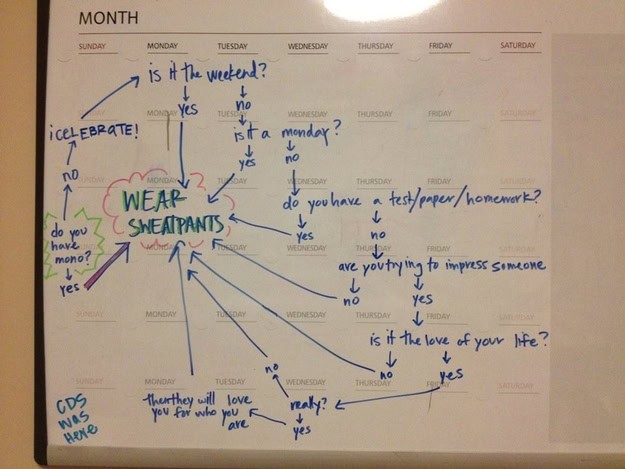 MONTH
SUNDAY MONDAY TUESDAY WEDNESDAY THURSDAY FRIDAY SATURDAY
is it the weekend?
yes no
MONDAY TUESDAY WEDNESDAY THURSDAY FRIDAY SATURDAY
¡CELEBRATE!
is it a monday?
yes no
no
SUNDAY MONDAY TUESDAY WEDNESDAY THURSDAY FRIDAY SATURDAY
WEAR
SWEATPANTS
do you have a test/paper/homework?
yes no
do you
have
mono?
yes
MONDAY TUESDAY WEDNESDAY THURSDAY FRIDAY SATURDAY
are you trying to impress someone
no yes
SUNDAY MONDAY TUESDAY WEDNESDAY THURSDAY FRIDAY SATURDAY
is it the love of your life?
no yes
MONDAY TUESDAY WEDNESDAY THURSDAY FRIDAY SATURDAY
really?
no
yes
then they will love
you for who you
are
CDS
was
Here